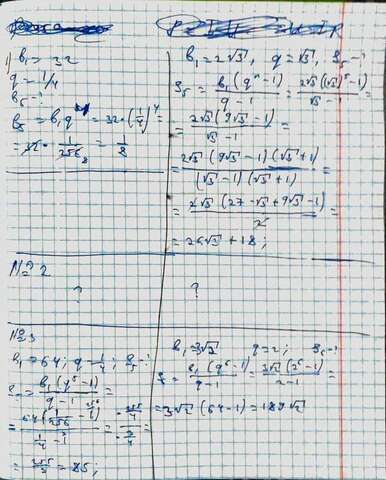 1) b₁ = 32
q = 1/4
b₅ - ?
b₅ = b₁q⁴ = 32·(1/4)⁴ =
= 32 · 1/256 = 1/8
b₁ = 2√3, q = √3, S₅ - ?
S₅ = b₁(qⁿ-1)/(q-1) = 2√3((√3)⁵-1)/(√3-1) =
= 2√3(9√3-1)/(√3-1) =
= 2√3(9√3-1)(√3+1)/((√3-1)(√3+1)) =
= 2√3(27-√3+9√3-1)/2 =
= 26√3 + 18;
№2
?
?
№3
b₁ = 64; q = 1/4; S₅ - ?
= b₁(q⁵-1)/(q-1)
= 64(1/256 - 1)/(1/4 - 1) =
= 255/3 = 85;
b₁ 3√2 q = 2; S₆ - ?
= b₁(q⁶-1)/(q-1) = 3√2(2⁶-1)/(2-1) =
= 3√2(64-1) = 189√2